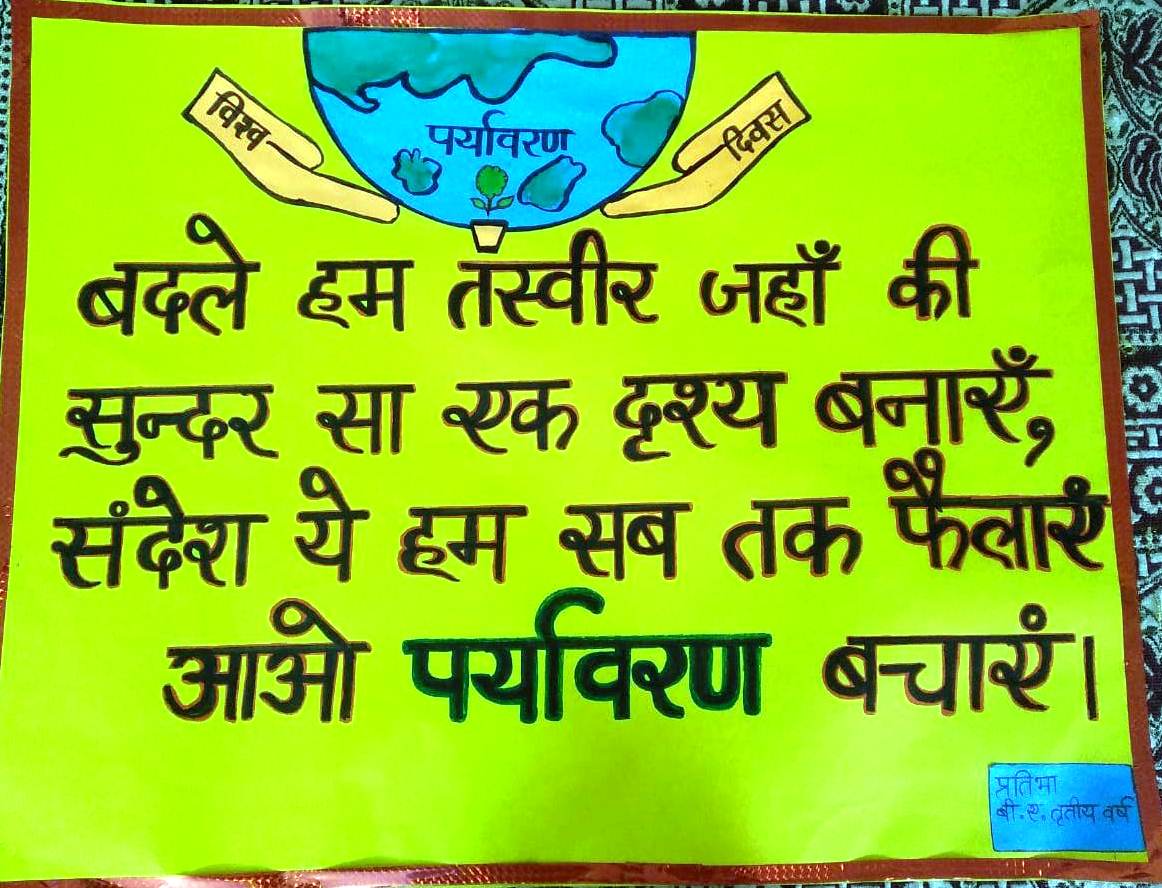 विश्व पर्यावरण दिवस
बदले हम तस्वीर जहाँ की
सुन्दर सा एक दृश्य बनाएँ,
संदेश ये हम सब तक फैलाएं
आओ पर्यावरण बचाएं।
प्रतिभा
बी.ए. तृतीय वर्ष